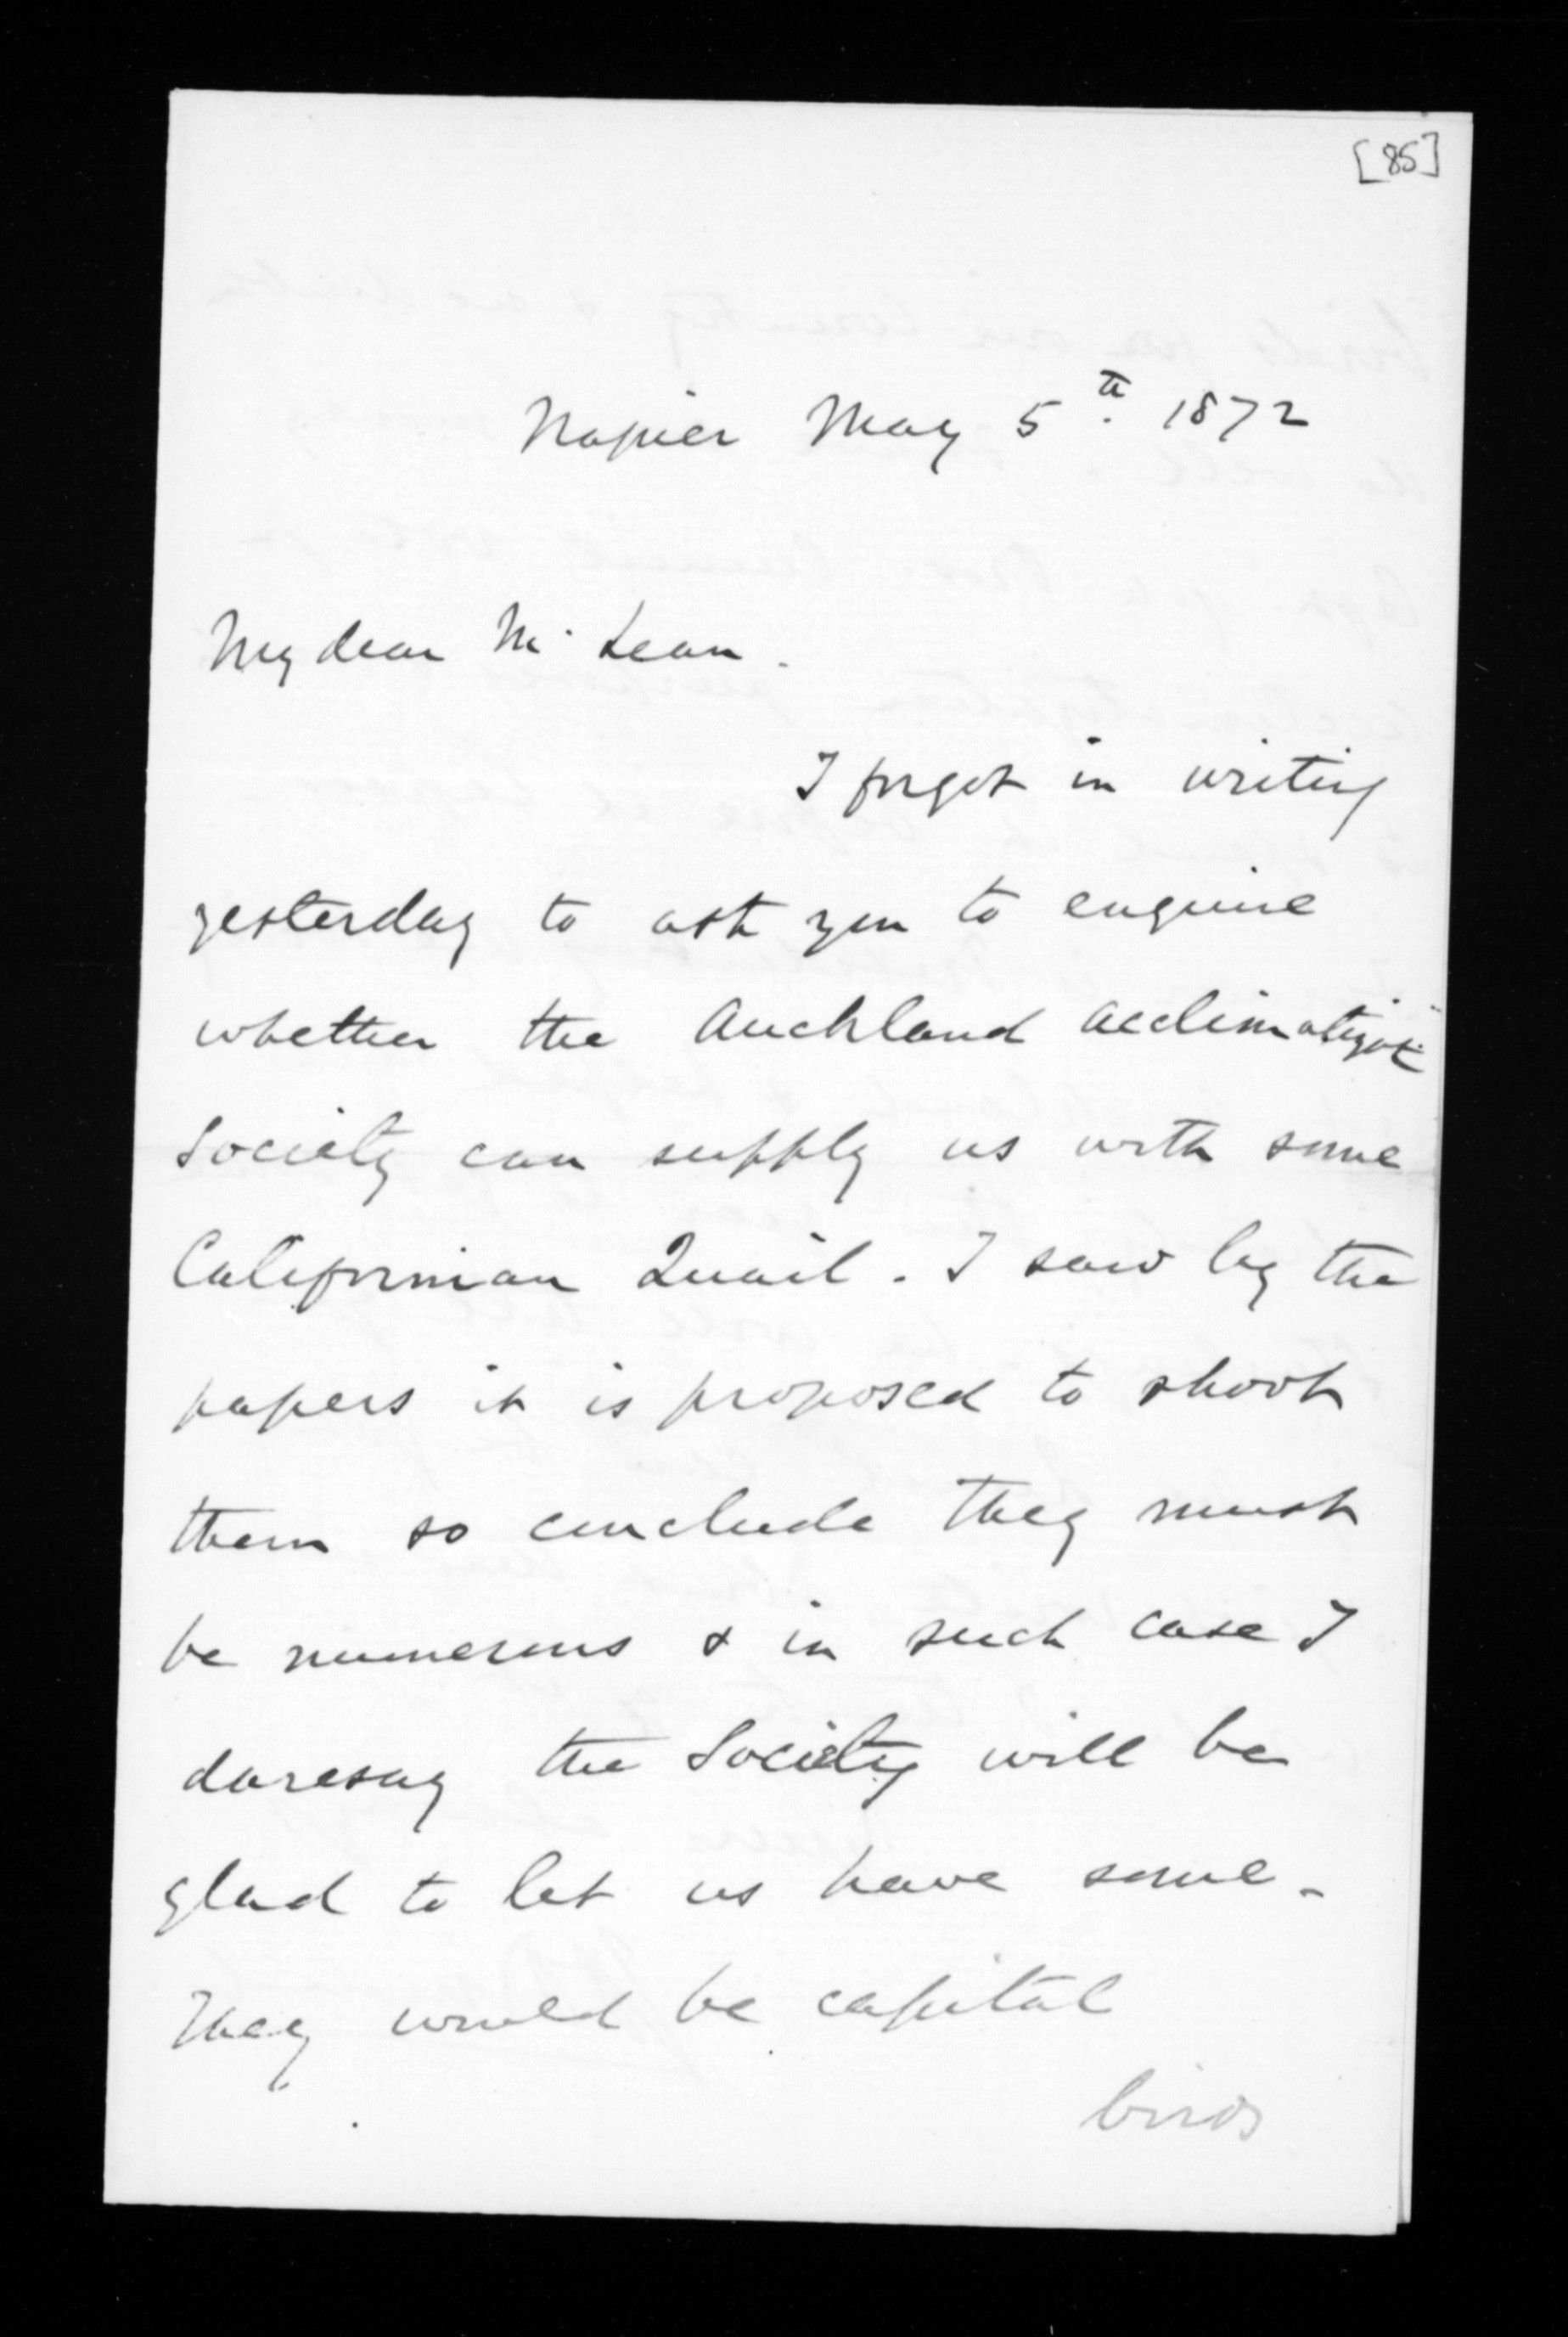 [85]
Napier May 5th. 1872
My dear McLean.
I forgot in writing
yesterday to ask you to enquire
whether the Auckland acclimatizat
Society can supply us with some
Californian Quail. I saw by the
papers it is proposed to shoot
them so conclude they must
be numerous & in such case I
daresay the Society will be
glad to let us have some.
They would be capital
birds